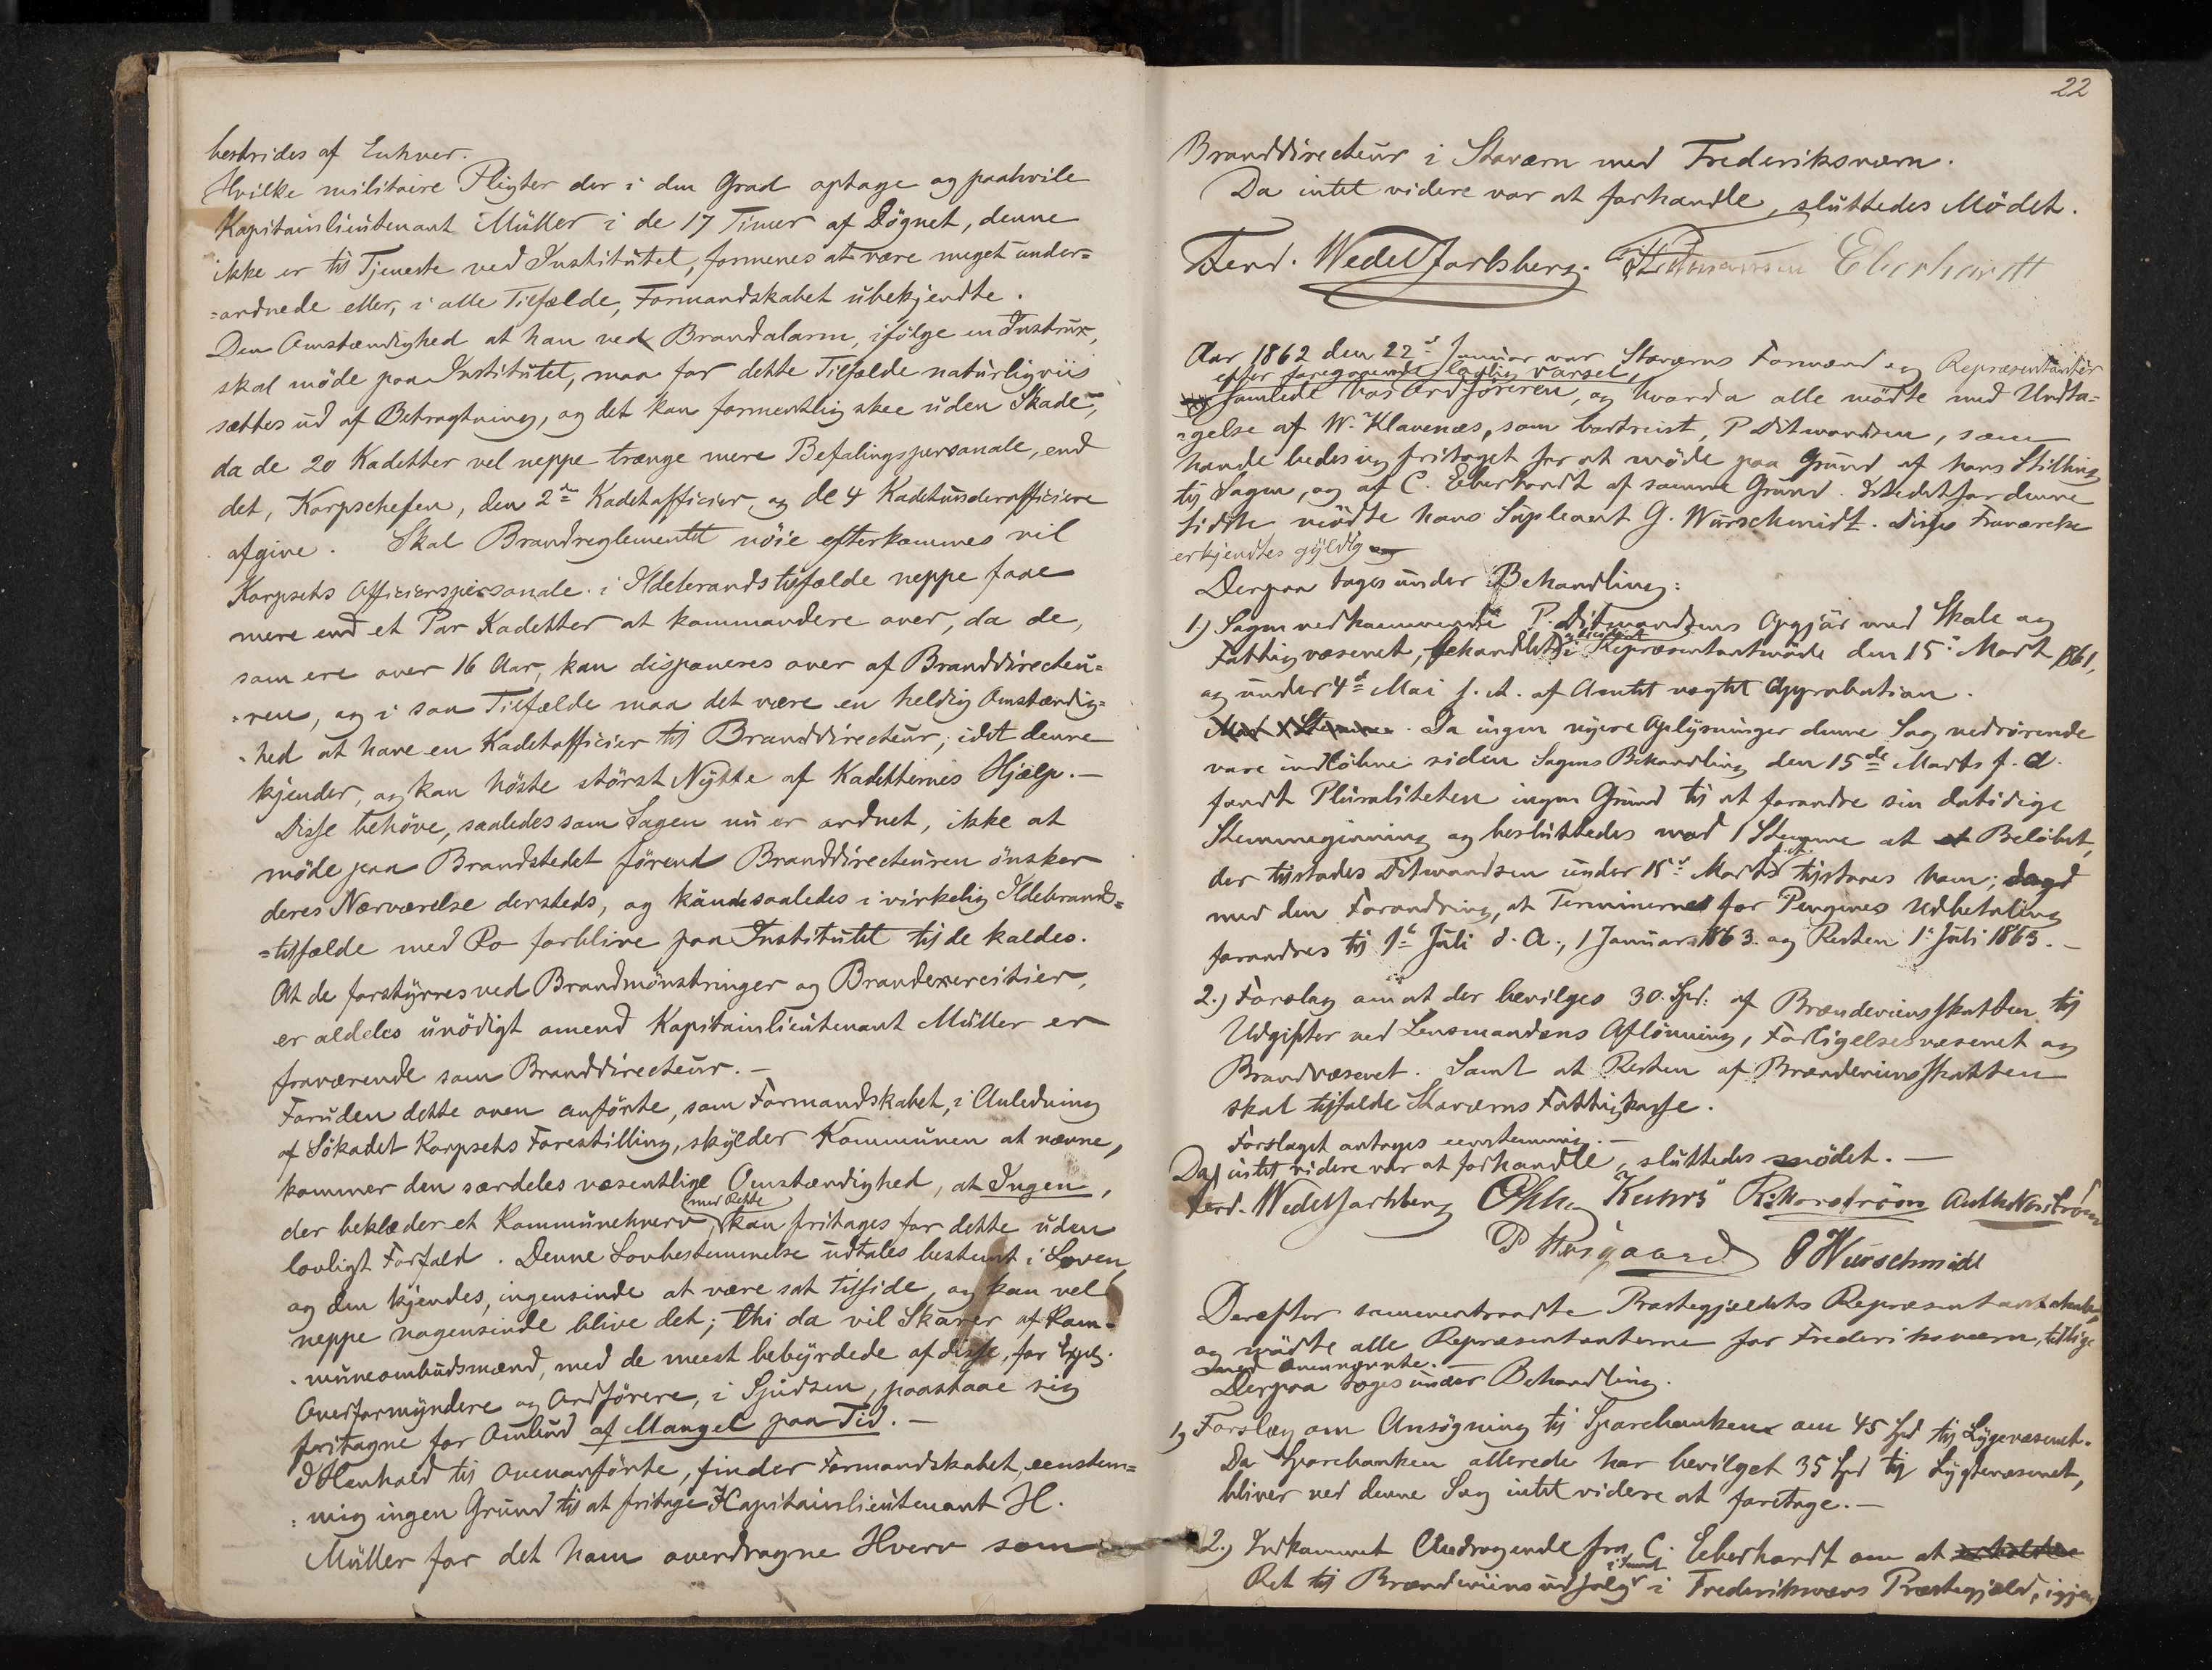 bestrides af Enhver.
Hvilke militaire Pligter der i den Grad optage og paahvile
Kapitainlieutenant Müller i de 17 Timer af Dögnet, denne
ikke er til Tjeneste ved Institutet, formenes at være meget under=
=ordnede eller, i alle Tilfælde, Formandskabet ubekjendte.
Den Omstændighed at han ved Brandalarm, ifölge en Instrux,
skal möde paa Institutet, maa for dette Tilfælde naturligviis
sættes ud af Betragtning, og det kan formentlig skee uden Skade,
da de 20 Kadetter vel neppe trænge mere Befalingspersonale, end
det, Korpschefen, den 2den Kadetofficier, og de 4 Kadetunderofficiere
afgive. Skal Brandreglementet nöie efterkommes vil
Korpsets Officierspersonale i Ildebrandstilfælde neppe faae
mere end et Par Kadetter at kommandere over, da de,
som ere over 16 Aar, kan disponeres over af Branddirecteu=
=ren, og i saa Tilfælde maa det være en heldig Omstændig=
=hed at have en Kadetofficier til Branddirecteur, idet denne
kjender, og kan höste störst Nytte af Kadetternes Hjælp.—
Disse behöve, saaledes som Sagen nu er ordnet, ikke at
möde paa Brandstedet förend Branddirecteuren önsker
deres Nærværelse dersteds, og kunde saaledes i virkelig Ildebrands=
=tilfælde med Ro forblive paa Institutet til de kaldes.
At de forstyrres ved Brandmönstringer og Brandexercitier,
er aldeles unödigt omend Kapitainlieutenant Müller er
fraværende som Branddirecteur.—
Foruden dette oven anförte, som Formandskabet, i Anledning
af Sökadet Korpsets Forestilling, skylder Kommunen at nævne,
kommer den særdeles væsentlige Omstændighed, at Ingen,
med Rette
der beklæder et Kommunehverv kan fritages for dette uden
lovligt Forfald. Denne Lovbestemmelse udtales bestemt i Loven,
og den kjendes, ingensinde at være sat tilside, og kan vel
neppe nogensinde blive det; thi da vil Skarer af Kom=
=muneombudsmænd, med de meest bebyrdede af disse, for Expl.
Overformyndere og Ordförere, i Spidsen, paastaae sig
fritagne for Ombud af Mangel paa Tid.—
I Henhold til ovenanförte, finder Formandskabet, eenstem=
=mig ingen Grund til at fritage Kapitainlieutenant H.
Müller for det ham overdragne Hverv som
22
Branddirecteur i Staværn med Frederiksværn.
Da intet videre var at forhandle, sluttedes Mödet.
Ferd. Wedel Jarlsberg. Eberhardt
Aar 1862 den 22de Januar var Staværns Formænd og Repræsentanter
efter foregaaende lovlig Varsel,
samlede hos Ordföreren, og hvorda alle mödte med Undta=
=gelse af W. Klavenæs, som bortreist, P Ditmandsen, som
havde bedet sig fritaget for at möde paa Grund af hans Stilling
til Sagen, og af C. Eberhardt af samme Grund. Istedetfor denne
sidste mödte hans Supleant G. Würschmidt. Disses Fraværelse
erkjendtes gyldig
Derpaa toges under Behandling:
1.) Sagen vedkommende P. Ditmandsens Opgjör med Skole og
Fattigvæsenet, behandlet i Repræsentantmöde den 15de Marts 1861,
og under 4de Mai f. A. af Amtet nægtet Approbation.
Da ingen nyere Oplysninger denne Sag vedrörende
vare indkomne siden Sagens Behandling den 15de Marts f. A.
fandt Pluraliteten ingen Grund til at forandre sin datidige
Stemmegivning og besluttedes mod 1 Stemme at Belöbet,
f. A.
der tilstodes Ditmandsen under 15de Marts tilstaaes ham;
med den Forandring, at Terminerne for Pengenes Udbetaling
forandres til 1ste Juli d. A., 1 Januar 1863. og Resten 1ste Juli 1863.—
2.) Forslag om at der bevilges 30. Spd: af Brændeviinsskatten til
Udgifter ved Lensmandens Aflönning, Forligelsesvæsenet og
Brandvæsenet. Samt at Resten af Brændeviinsskatten
skal tilfalde Staværns Fattigkasse.
Forslaget antoges eenstemmig.—
Da intet videre var at forhandle, sluttedes mödet.—
Ferd. Wedel Jarlsberg Kunrs R. Norström Anth Norström
G Würschmidt
Derefter sammentraadte Præstegjeldets Repræsentantskab,
og mödte alle Repræsentanterne for Frederiksværn, tillige
med ovennævnte.—
Derpaa toges under Behandling.
1) Forslag om Ansögning til Sparebanken om 45 Spd til Lygtevæsenet.
Da Sparebanken allerede har bevilget 35 Spd til Lygtevæsenet,
bliver ved denne Sag intet videre at foretage.—
2.) Indkommet Andragende fra C. Eberhardt om at erholde
Ret til Brændeviinsudsalg i Frederiksværns Præstegjæld, igjen